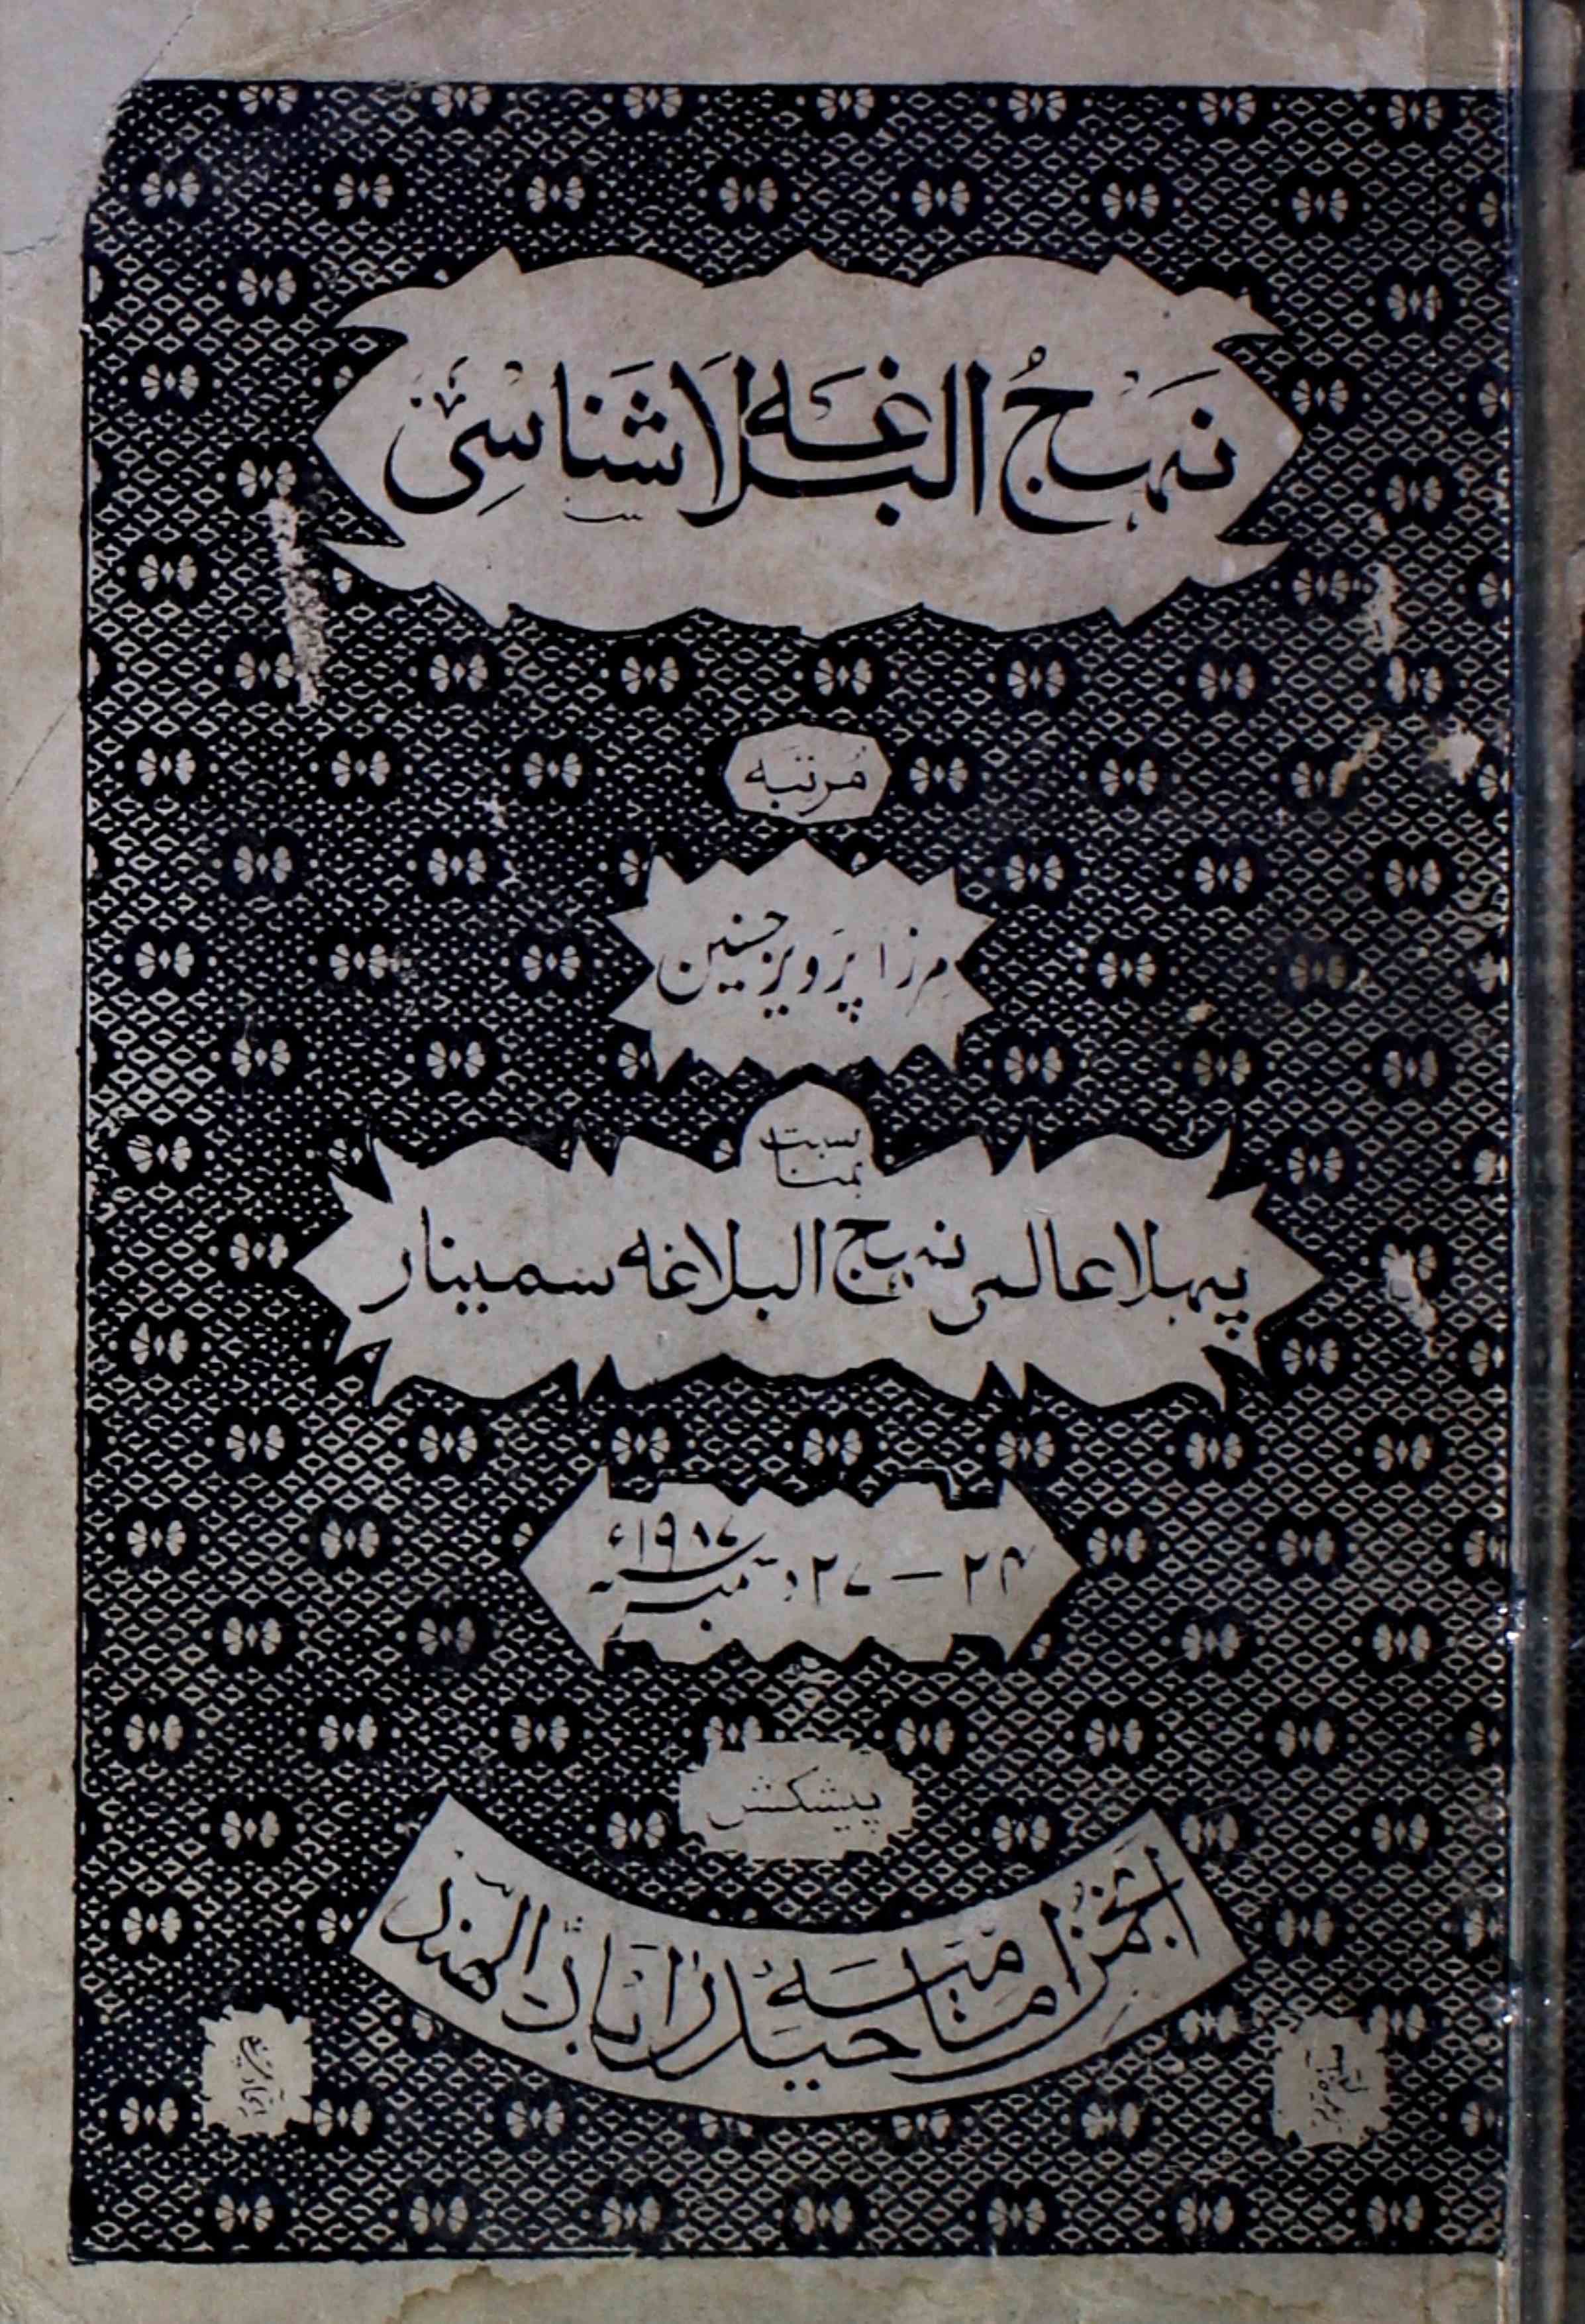 نہج البلاغہ شناسی
مُرتبہ
مرزا پرویز حسنین
بمناسبت
پہلا عالمی نہج البلاغہ سمینار
۲۴ – ۲۷ دسمبر ۱۹۸۷ء
پیشکش
انجمن امامیہ حیدرآباد الہند